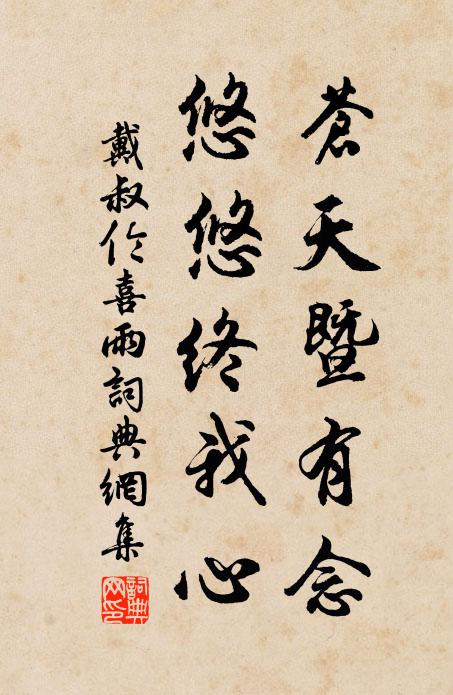 蒼天暨有念
悠悠終我心
戴叔伦喜雨詞典網集
詞典網印